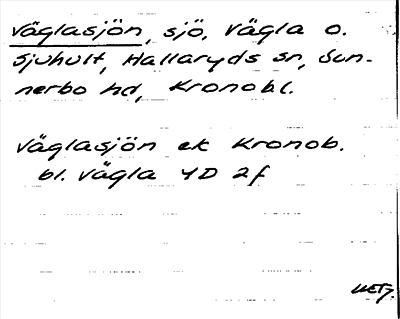 Väglasjön, sjö, Vägla o.
Sjuhult, Hallaryds sn, Sun-
nerbo hd, Kronobl.
Väglasjön ek Kronob.
bl. Vägla 4D 2f